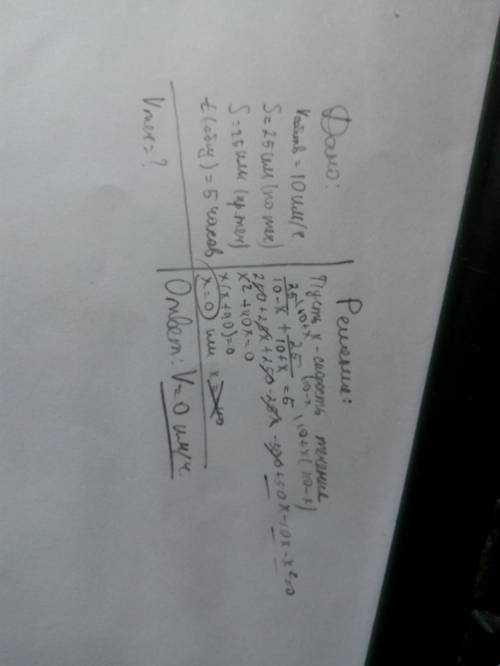 Дано:
Vсобств = 10 км/ч
S = 25 км (по теч)
S = 25 км (пр. теч)
t (общ) = 5 часов
Vтеч = ?
Решение:
Пусть x - скорость течения
25/10-x + 25/10+x = 5
250+25x+250-25x-500+50x-10x-x²=0
x²+40x=0
x(x+40)=0
x=0 или x
Ответ: V=0 км/ч